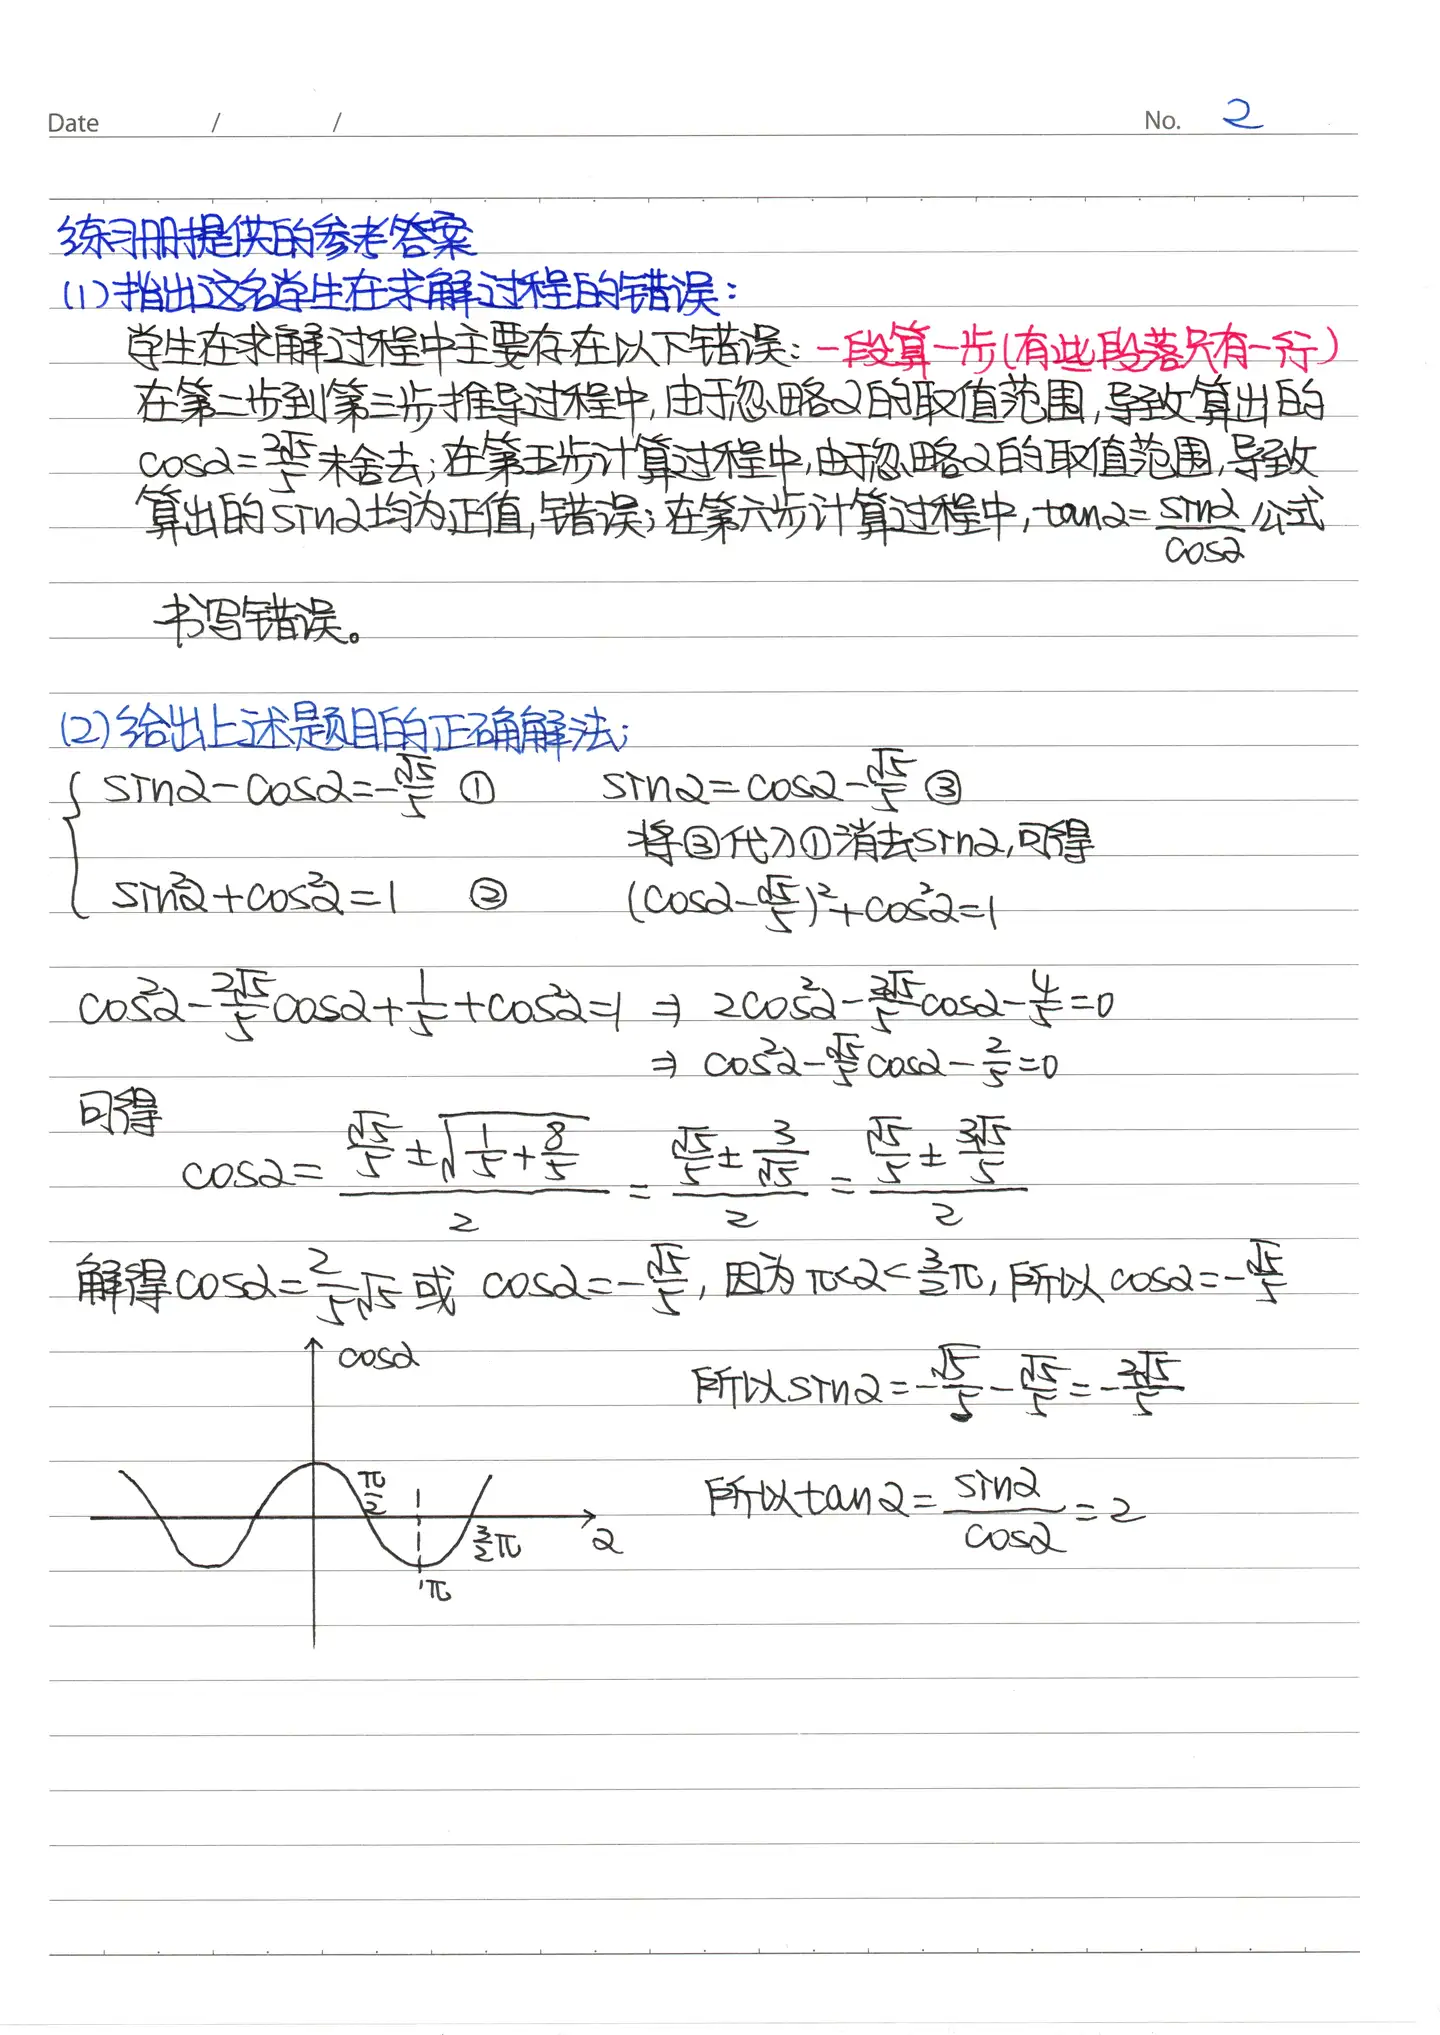 Date / / No. 2
练习册提供的参考答案
(1)指出这名学生在求解过程的错误:
学生在求解过程中主要存在以下错误:一段算一步(有些段落只有一行)
在第二步到第三步推导过程中,由于忽略α的取值范围,导致算出的
cosα=2√5/5未舍去;在第五步计算过程中,由于忽略α的取值范围,导致
算出的sinα均为正值,错误;在第六步计算过程中,tanα=sinα/cosα公式
书写错误。
(2)给出上述题目的正确解法;
sinα-cosα=-√5/5 ① sinα=cosα-√5/5 ③
将③代入①消去sinα,可得
sin²α+cos²α=1 ② (cosα-√5/5)²+cos²α=1
cos²α-2√5/5cosα+1/5+cos²α=1 ⇒ 2cos²α-2√5/5cosα-4/5=0
⇒ cos²α-√5/5cosα-2/5=0
可得
cosα=(√5/5±√(1/5+8/5))/2=(√5/5±3/√5)/2=(√5/5±3√5/5)/2
解得cosα=2/5√5或 cosα=-√5/5,因为π<α<3/2π,所以cosα=-√5/5
cosα
所以sinα=-√5/5-√5/5=-2√5/5
π/2
所以tanα=sinα/cosα=2
3/2π α
π